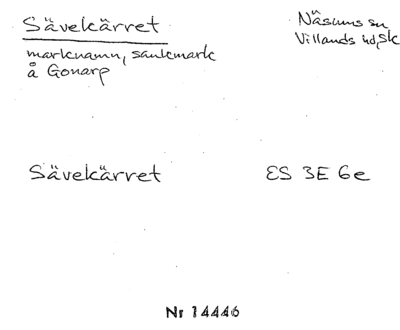 Sävekärret
Näsums sn
Villands hd, Sk
marknamn, sankmark
å Gonarp
Sävekärret
ES 3E 6e
Nr 14446